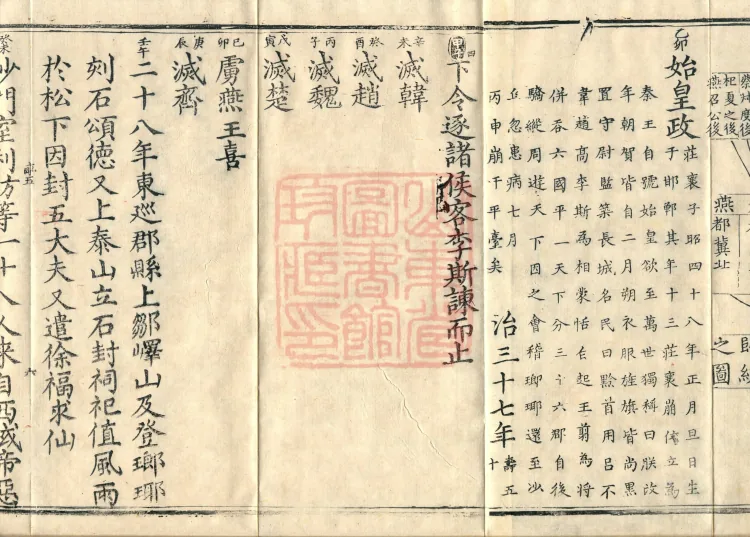 杞夏之後
燕召公後
燕都冀北
之圖
卯
始皇政
莊襄子昭四十八年正月旦日生
于邯鄲其年十三莊襄崩立為
秦王自號始皇欲至萬世獨稱曰朕改
年朝賀皆自二月朔衣服旌旗皆尚黑
置守尉監築長城名民曰黔首用呂不
韋趙高李斯為相蒙恬白起王翦為將
併吞六國平一天下分三十六郡自後
驕縱周遊天下因之會稽瑯琊還至沙
丘忽患病七月
丙申崩于平臺矣
治三十七年
壽五十
四
下令逐諸侯客李斯諫而止
辛未
滅韓
癸酉
滅趙
丙子
滅魏
戊寅
滅楚
己卯
虜燕王喜
庚辰
滅齊
壬午
二十八年東巡郡縣上鄒嶧山及登瑯琊
刻石頌德又上泰山立石封祠祀值風雨
於松下因封五大夫又遣徐福求仙
癸未
沙門室利方等一十八人來自西域帝惡
六
山東省
圖書館
珍藏印